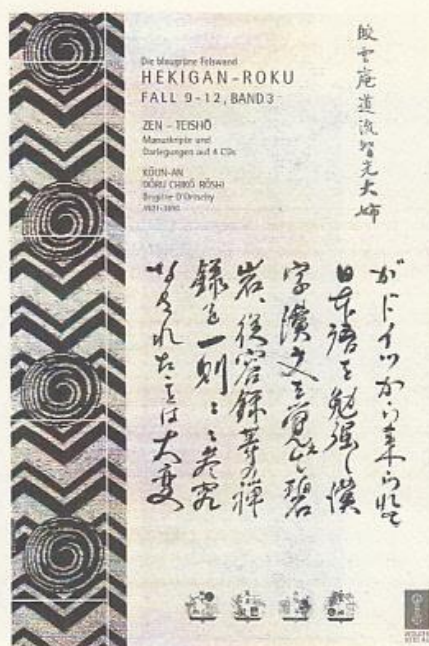 Die blaugrüne Felswand
HEKIGAN-ROKU
FALL 9-12, BAND 3
ZEN - TEISHŌ
Manuskripte und
Darlegungen auf 4 CDs
KÔUN-AN
DÔRU CHIKÔ RÔSHI
Brigitte D'Ortschy
1921-1990
皎雲庵道流智光大姉
がドイツから来られて
日本語を勉強し漢
字漢文を覚え碧
岩、従容録等の禅
録を一則々々参究
なされたことは大変